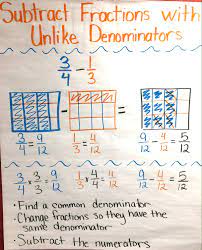 Subtract Fractions with
Unlike Denominators
3/4 - 1/3
- =
3/4 = 9/12 1/3 = 4/12 9/12 - 4/12 = 5/12
3/4 × 3/3 = 9/12 1/3 × 4/4 = 4/12 9/12 - 4/12 = 5/12
• Find a common denominator
• Change fractions so they have the
same denominator
• Subtract the numerators